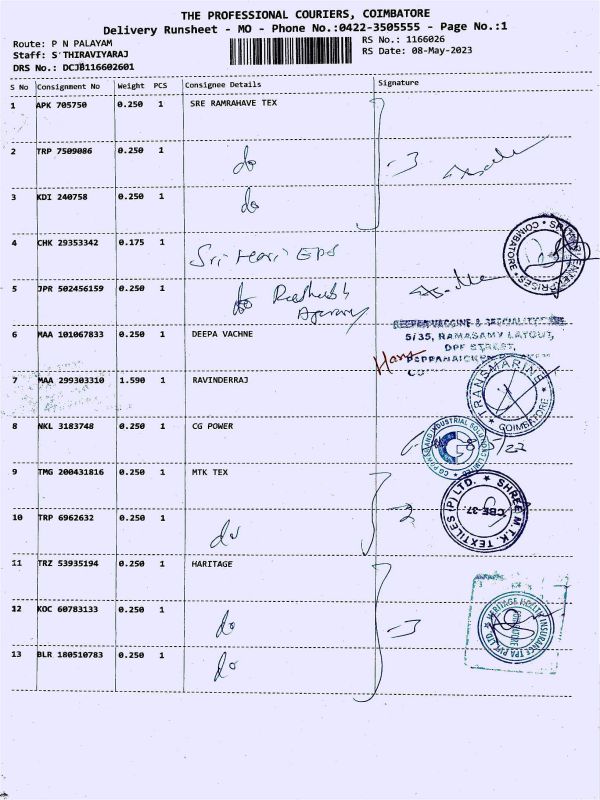 THE PROFESSIONAL COURIERS, COIMBATORE
Delivery Runsheet - MO - Phone No.:0422-3505555 - Page No.:1
Route: P N PALAYAM
RS No.: 1166026
Staff: S THIRAVIYARAJ
RS Date: 08-May-2023
DRS No.: DCJB116602601
S No Consignment No Weight PCS Consignee Details Signature
1 APK 705750 0.250 1 SRE RAMRAHAVE TEX
2 TRP 7509086 0.250 1 do -3
3 KDI 240758 0.250 1 do
4 CHK 29353342 0.175 1 Sri Hari
COIMBATORE
5 JPR 502456159 0.250 1
6 MAA 101067833 0.250 1 DEEPA VACHNE
5/35, RAMASAMY LAYOUT,
7 MAA 299303310 1.590 1 RAVINDERRAJ
TRANSMARINE
COIMBATORE
8 NKL 3183748 0.250 1 CG POWER
9 TMG 200431816 0.250 1 MTK TEX
SHREE M.T.K. TEXTILES (P) LTD.
CBE-37.
10 TRP 6962632 0.250 1 do 2
11 TRZ 53935194 0.250 1 HARITAGE
12 KOC 60783133 0.250 1 do -3
HERITAGE HEALTH INSURANCE TPA PVT. LTD.
13 BLR 180510783 0.250 1 do